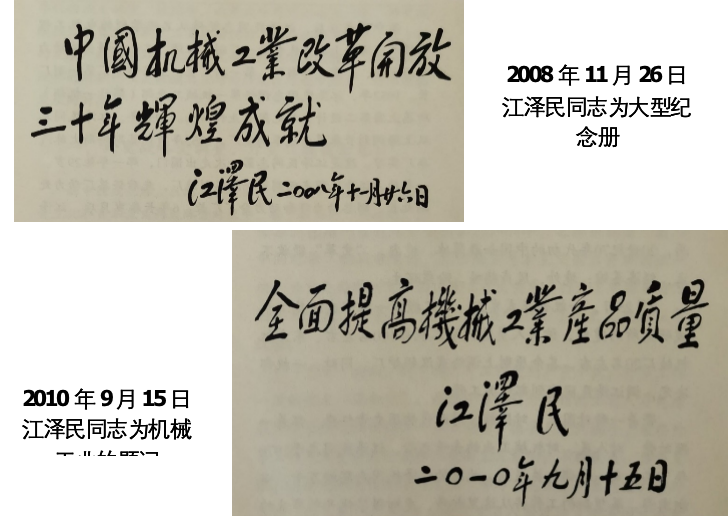 中國机械工業改革開放
三十年輝煌成就
江澤民二〇〇八年十一月廿六日
2008 年 11 月 26 日
江泽民同志为大型纪
念册
全面提高機械工業產品質量
江澤民
二〇一〇年九月十五日
2010 年 9 月 15 日
江泽民同志为机械